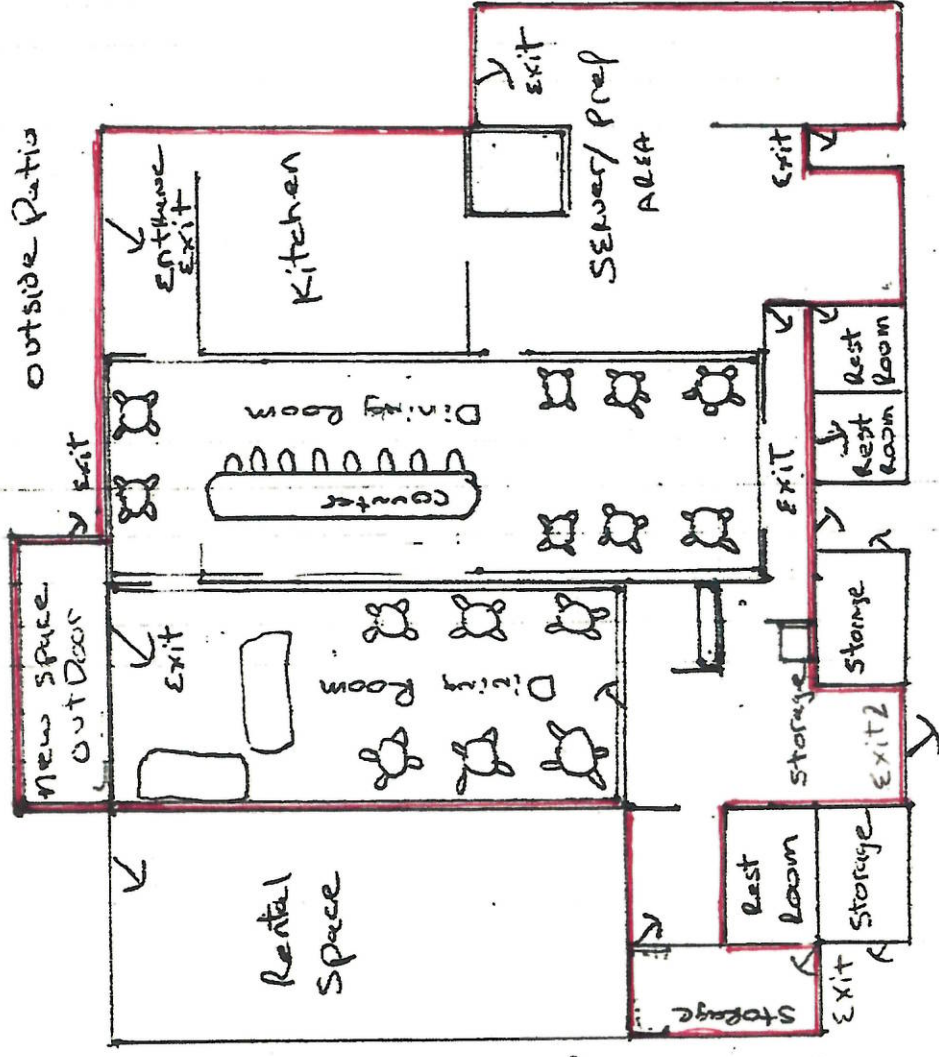 outside Patio
Exit
SERVER/ Prep
AREA
Exit
Entrance
Exit
Kitchen
Exit
Dining Room
Counter
Exit
Rest
Room
Rest
Room
New Space
OutDoor
Exit
Dining Room
Storage
Storage
Exit2
Rental
Space
Rest
Room
Storage
Storage
Exit